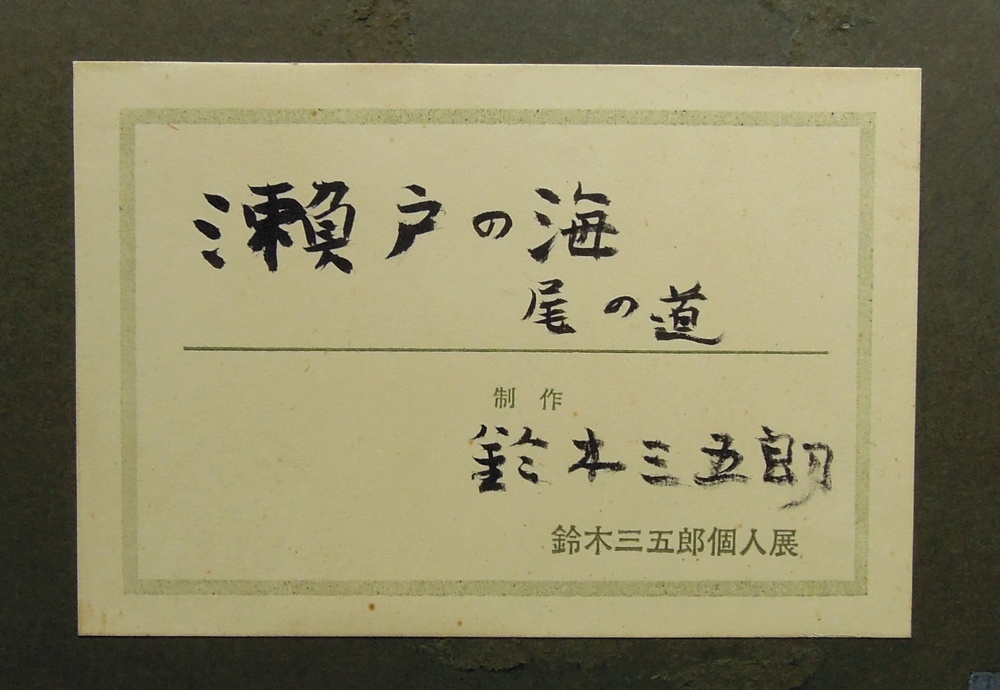 瀬戸の海
尾の道
制作
鈴木三五朗
鈴木三五郎個人展